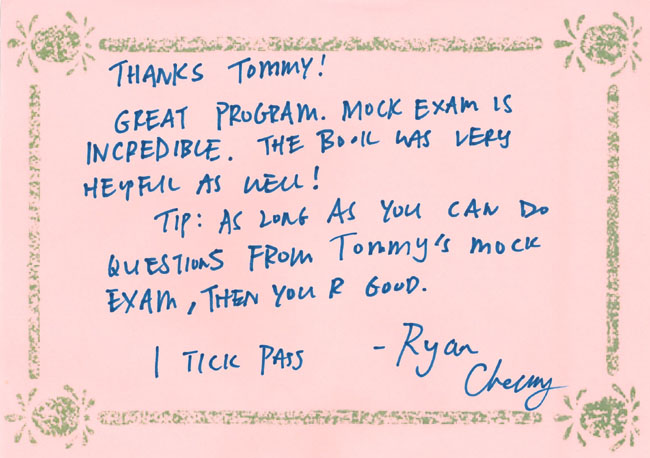 THANKS TOMMY!
GREAT PROGRAM. MOCK EXAM IS
INCREDIBLE. THE BOOK WAS VERY
HELPFUL AS WELL!
TIP: AS LONG AS YOU CAN DO
QUESTIONS FROM Tommy's MOCK
EXAM, THEN YOU R GOOD.
1 TICK PASS - Ryan